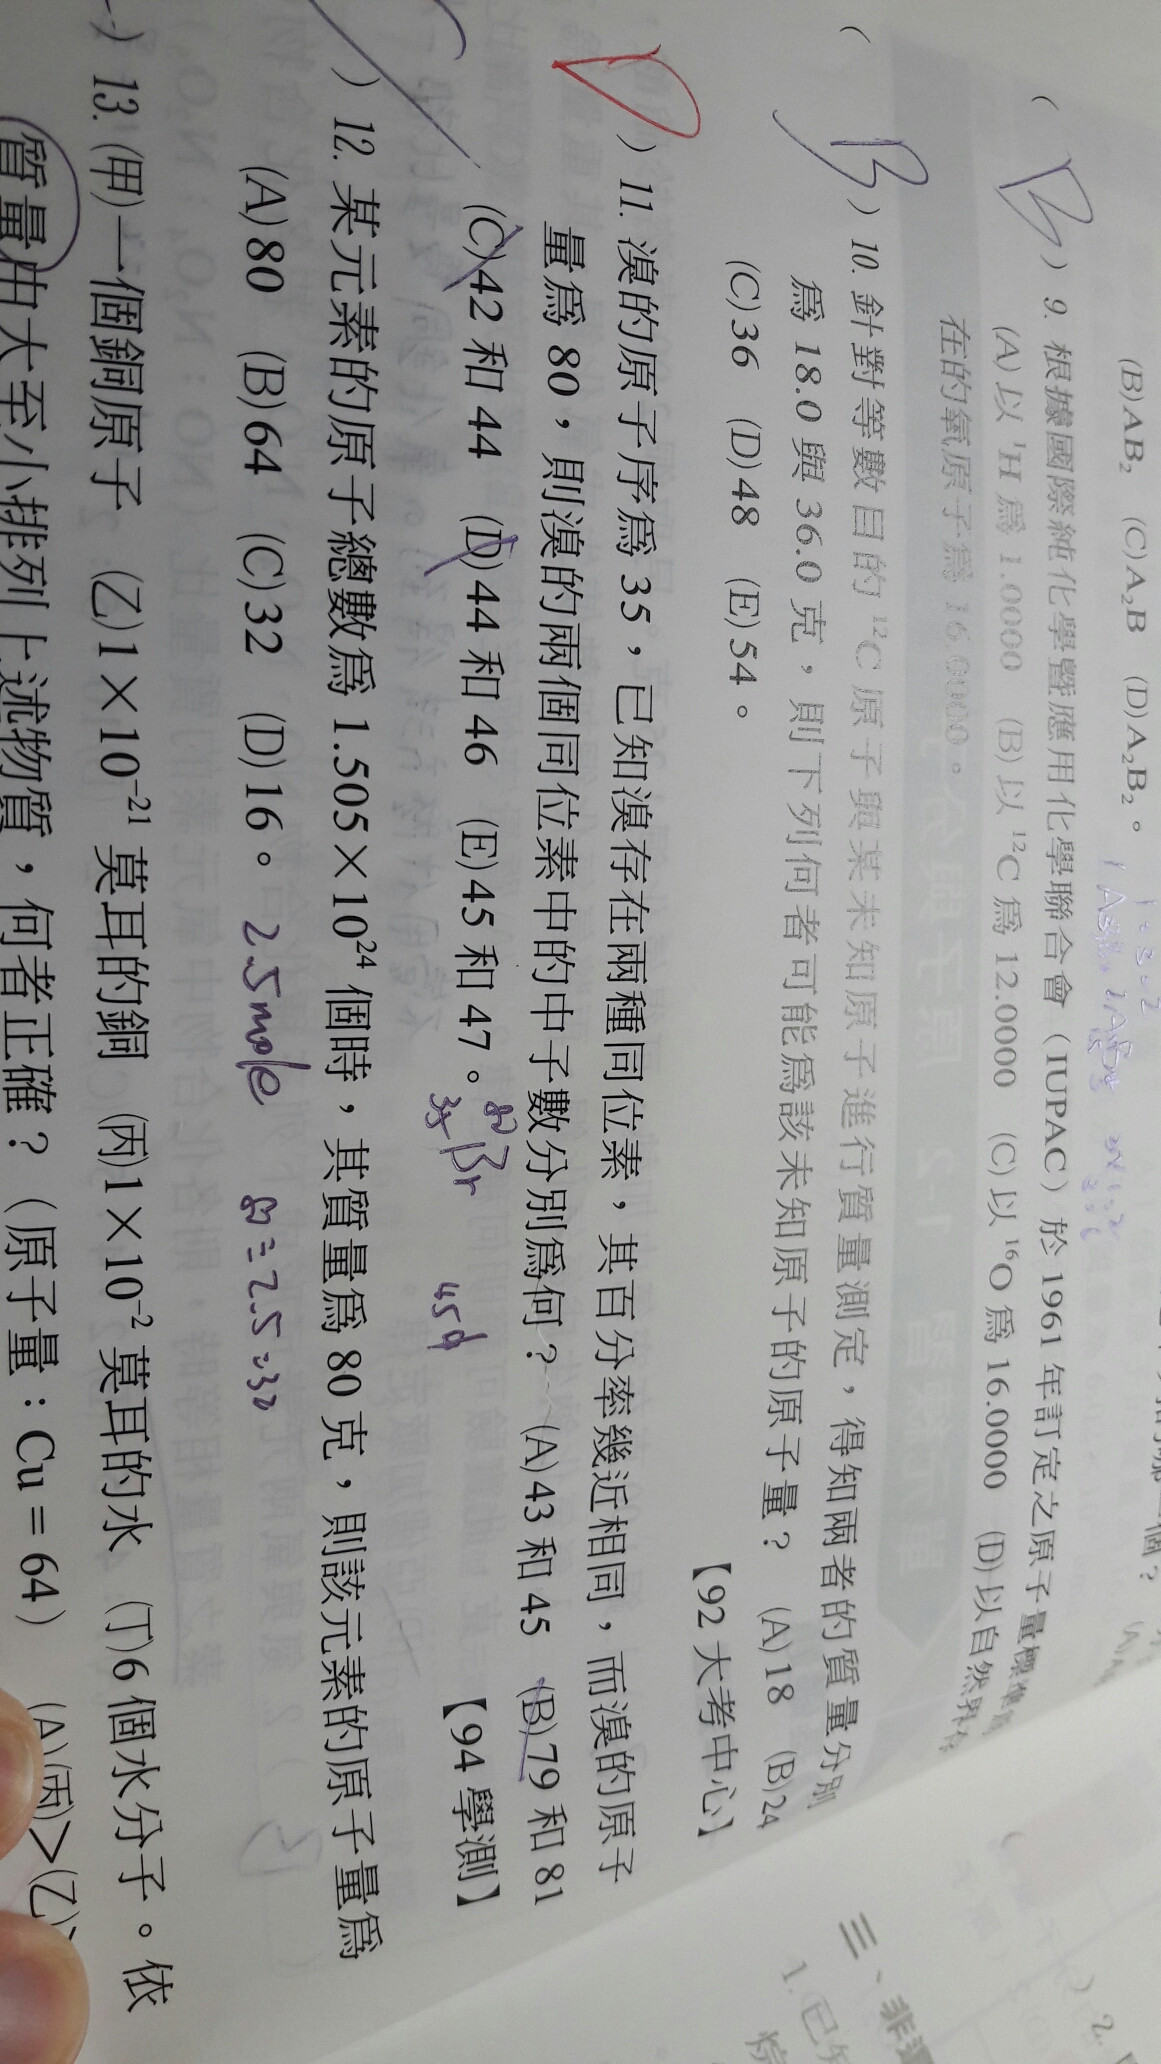 (B)AB₂ (C)A₂B (D)A₂B₂。
( B ) 9. 根據國際純化學暨應用化學聯合會（IUPAC）於 1961 年訂定之原子量標準為
(A)以 ¹H 為 1.0000 (B)以 ¹²C 為 12.0000 (C)以 ¹⁶O 為 16.0000 (D)以自然界存
在的氧原子為 16.0000。
( B ) 10. 針對等數目的 ¹²C 原子與某未知原子進行質量測定，得知兩者的質量分別
為 18.0 與 36.0 克，則下列何者可能為該未知原子的原子量？ (A)18 (B)24
(C)36 (D)48 (E)54。
【92 大考中心】
) 11. 溴的原子序為 35，已知溴存在兩種同位素，其百分率幾近相同，而溴的原子
量為 80，則溴的兩個同位素中的中子數分別為何？ (A)43 和 45 (B)79 和 81
(C)42 和 44 (D)44 和 46 (E)45 和 47。
80
35 Br
【94 學測】
) 12. 某元素的原子總數為 1.505×10²⁴ 個時，其質量為 80 克，則該元素的原子量為
(A)80 (B)64 (C)32 (D)16。 2.5mole 80÷2.5=32
) 13. (甲)一個銅原子 (乙)1×10⁻²¹ 莫耳的銅 (丙)1×10⁻² 莫耳的水 (丁)6 個水分子。依
質量由大至小排列上述物質，何者正確？（原子量：Cu = 64） (A)(丙)>(乙)
三、非選
1. 已知
2.